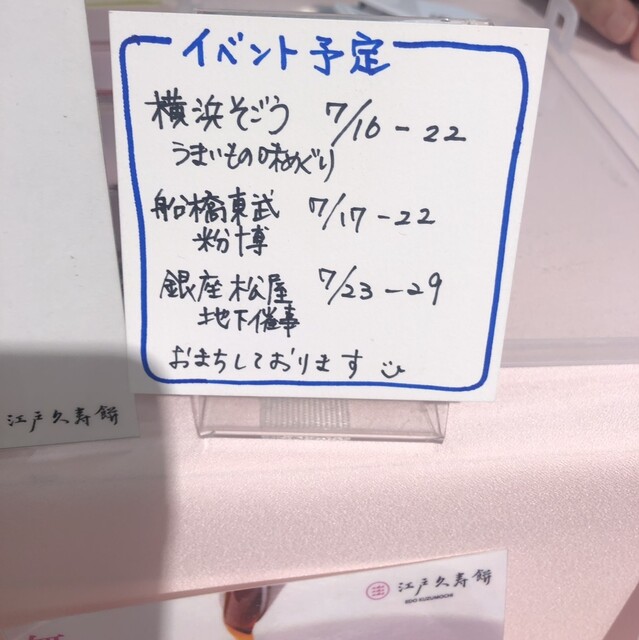 イベント予定
横浜そごう 7/16-22
うまいもの味めぐり
船橋東武 7/17-22
粉博
銀座松屋 7/23-29
地下催事
おまちしております
江戸久寿餅
江戸久寿餅
EDO KUZUMOCHI